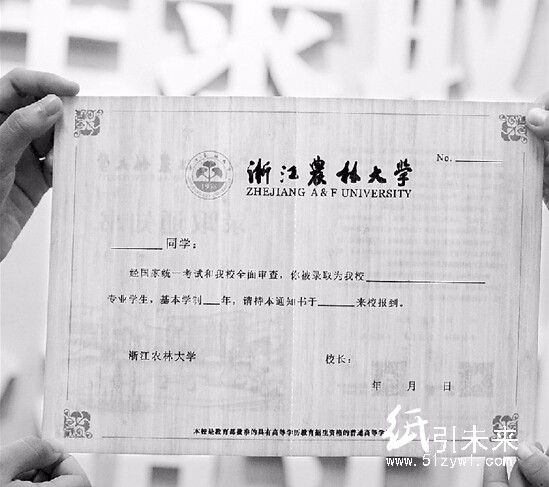 No.______
浙江农林大学
ZHEJIANG A & F UNIVERSITY
______同学:
经国家统一考试和我校全面审查,你被录取为我校____________
专业学生,基本学制___年,请持本通知书于_____来校报到。
浙江农林大学 校长:
年 月 日
本校是教育部批准的具有高等学历教育招生资格的普通高等学
纸引未来
www.51zywl.com